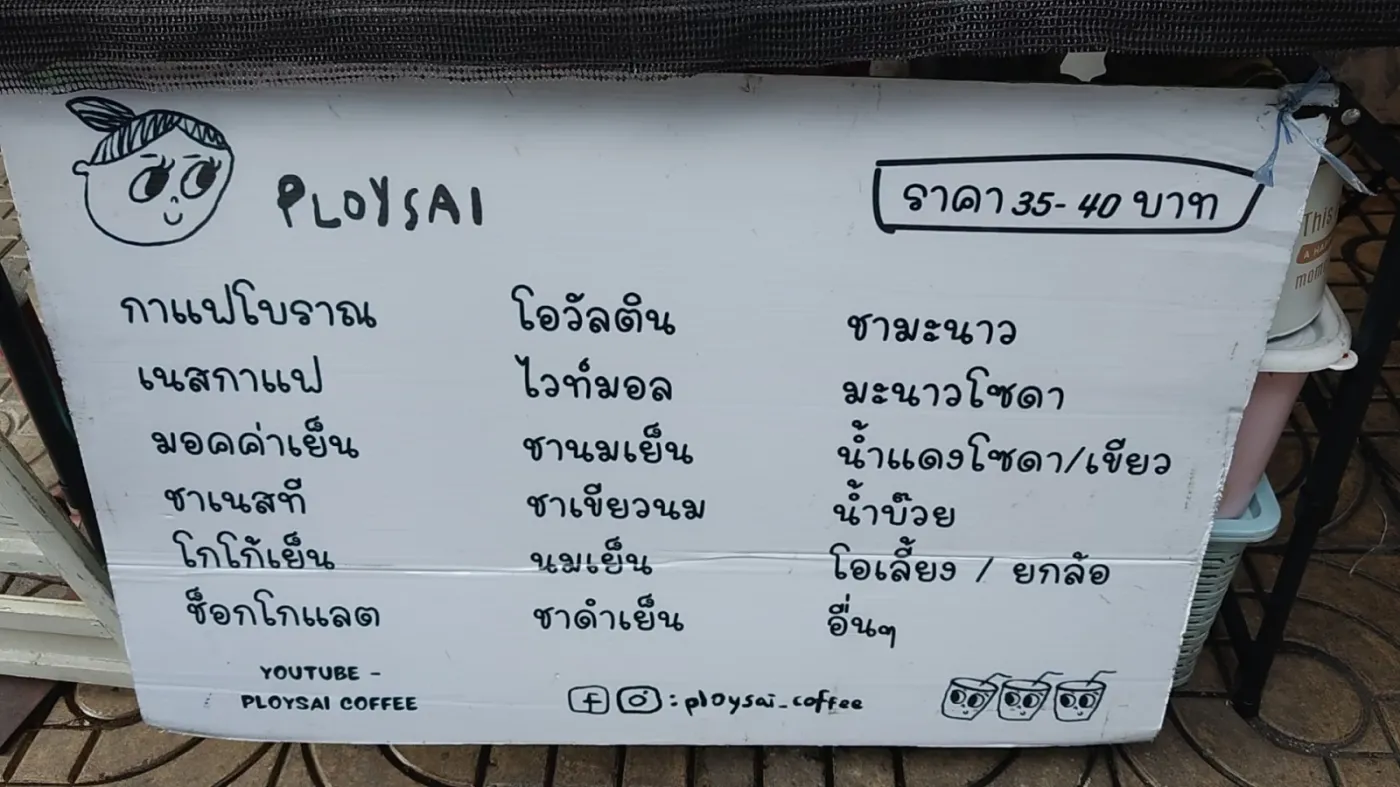 PLOYSAI
ราคา 35- 40 บาท
กาแฟโบราณ
เนสกาแฟ
มอคค่าเย็น
ชาเนสที
โกโก้เย็น
ช็อกโกแลต
โอวัลติน
ไวท์มอล
ชานมเย็น
ชาเขียวนม
นมเย็น
ชาดำเย็น
ชามะนาว
มะนาวโซดา
น้ำแดงโซดา/เขียว
น้ำบ๊วย
โอเลี้ยง / ยกล้อ
อื่นๆ
YOUTUBE -
PLOYSAI COFFEE
: ploysai_coffee
This